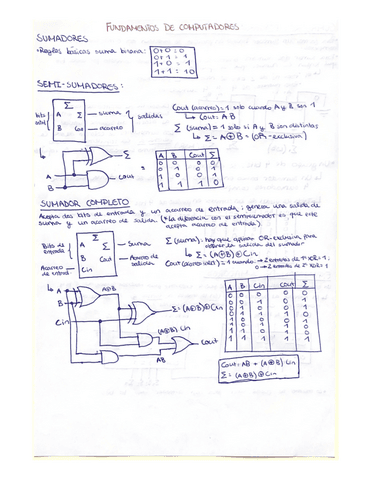 FUNDAMENTOS DE COMPUTADORES
SUMADORES
• Reglas básicas suma binaria:
0+0 = 0
0+1 = 1
1+0 = 1
1+1 = 10
SEMI-SUMADORES:
Σ
A Σ
B Cout
suma
acarreo
salidas
Cout (acarreo) = 1 solo cuando A y B son 1
↳ Cout: A·B
Σ (suma) = 1 solo si A y B son distintas
↳ Σ = A⊕B = (OR-exclusiva)
A
B
Σ
Cout
A B Cout Σ
0 0 0 0
0 1 0 1
1 0 0 1
1 1 1 0
SUMADOR COMPLETO
Acepta dos bits de entrada y un acarreo de entrada, genera una salida de
suma y un acarreo de salida (* la diferencia con el semisumador es que este
acepta acarreo de entrada).
Bits de entrada
Acarreo de entrad
Σ
A Σ
B Cout
Cin
Suma
Acarreo de salida
Σ (suma): hay que aplicar OR-exclusiva para
obtener la salida del sumador
↳ Σ = (A⊕B)⊕Cin
A
B
Cin
A⊕B
Σ = (A⊕B)⊕Cin
(A⊕B)·Cin
AB
Cout
A B Cin Cout Σ
0 0 0 0 0
0 0 1 0 1
0 1 0 0 1
0 1 1 1 0
1 0 0 0 1
1 0 1 1 0
1 1 0 1 0
1 1 1 1 1
Cout: AB + (A⊕B)·Cin
Σ = (A⊕B)⊕Cin